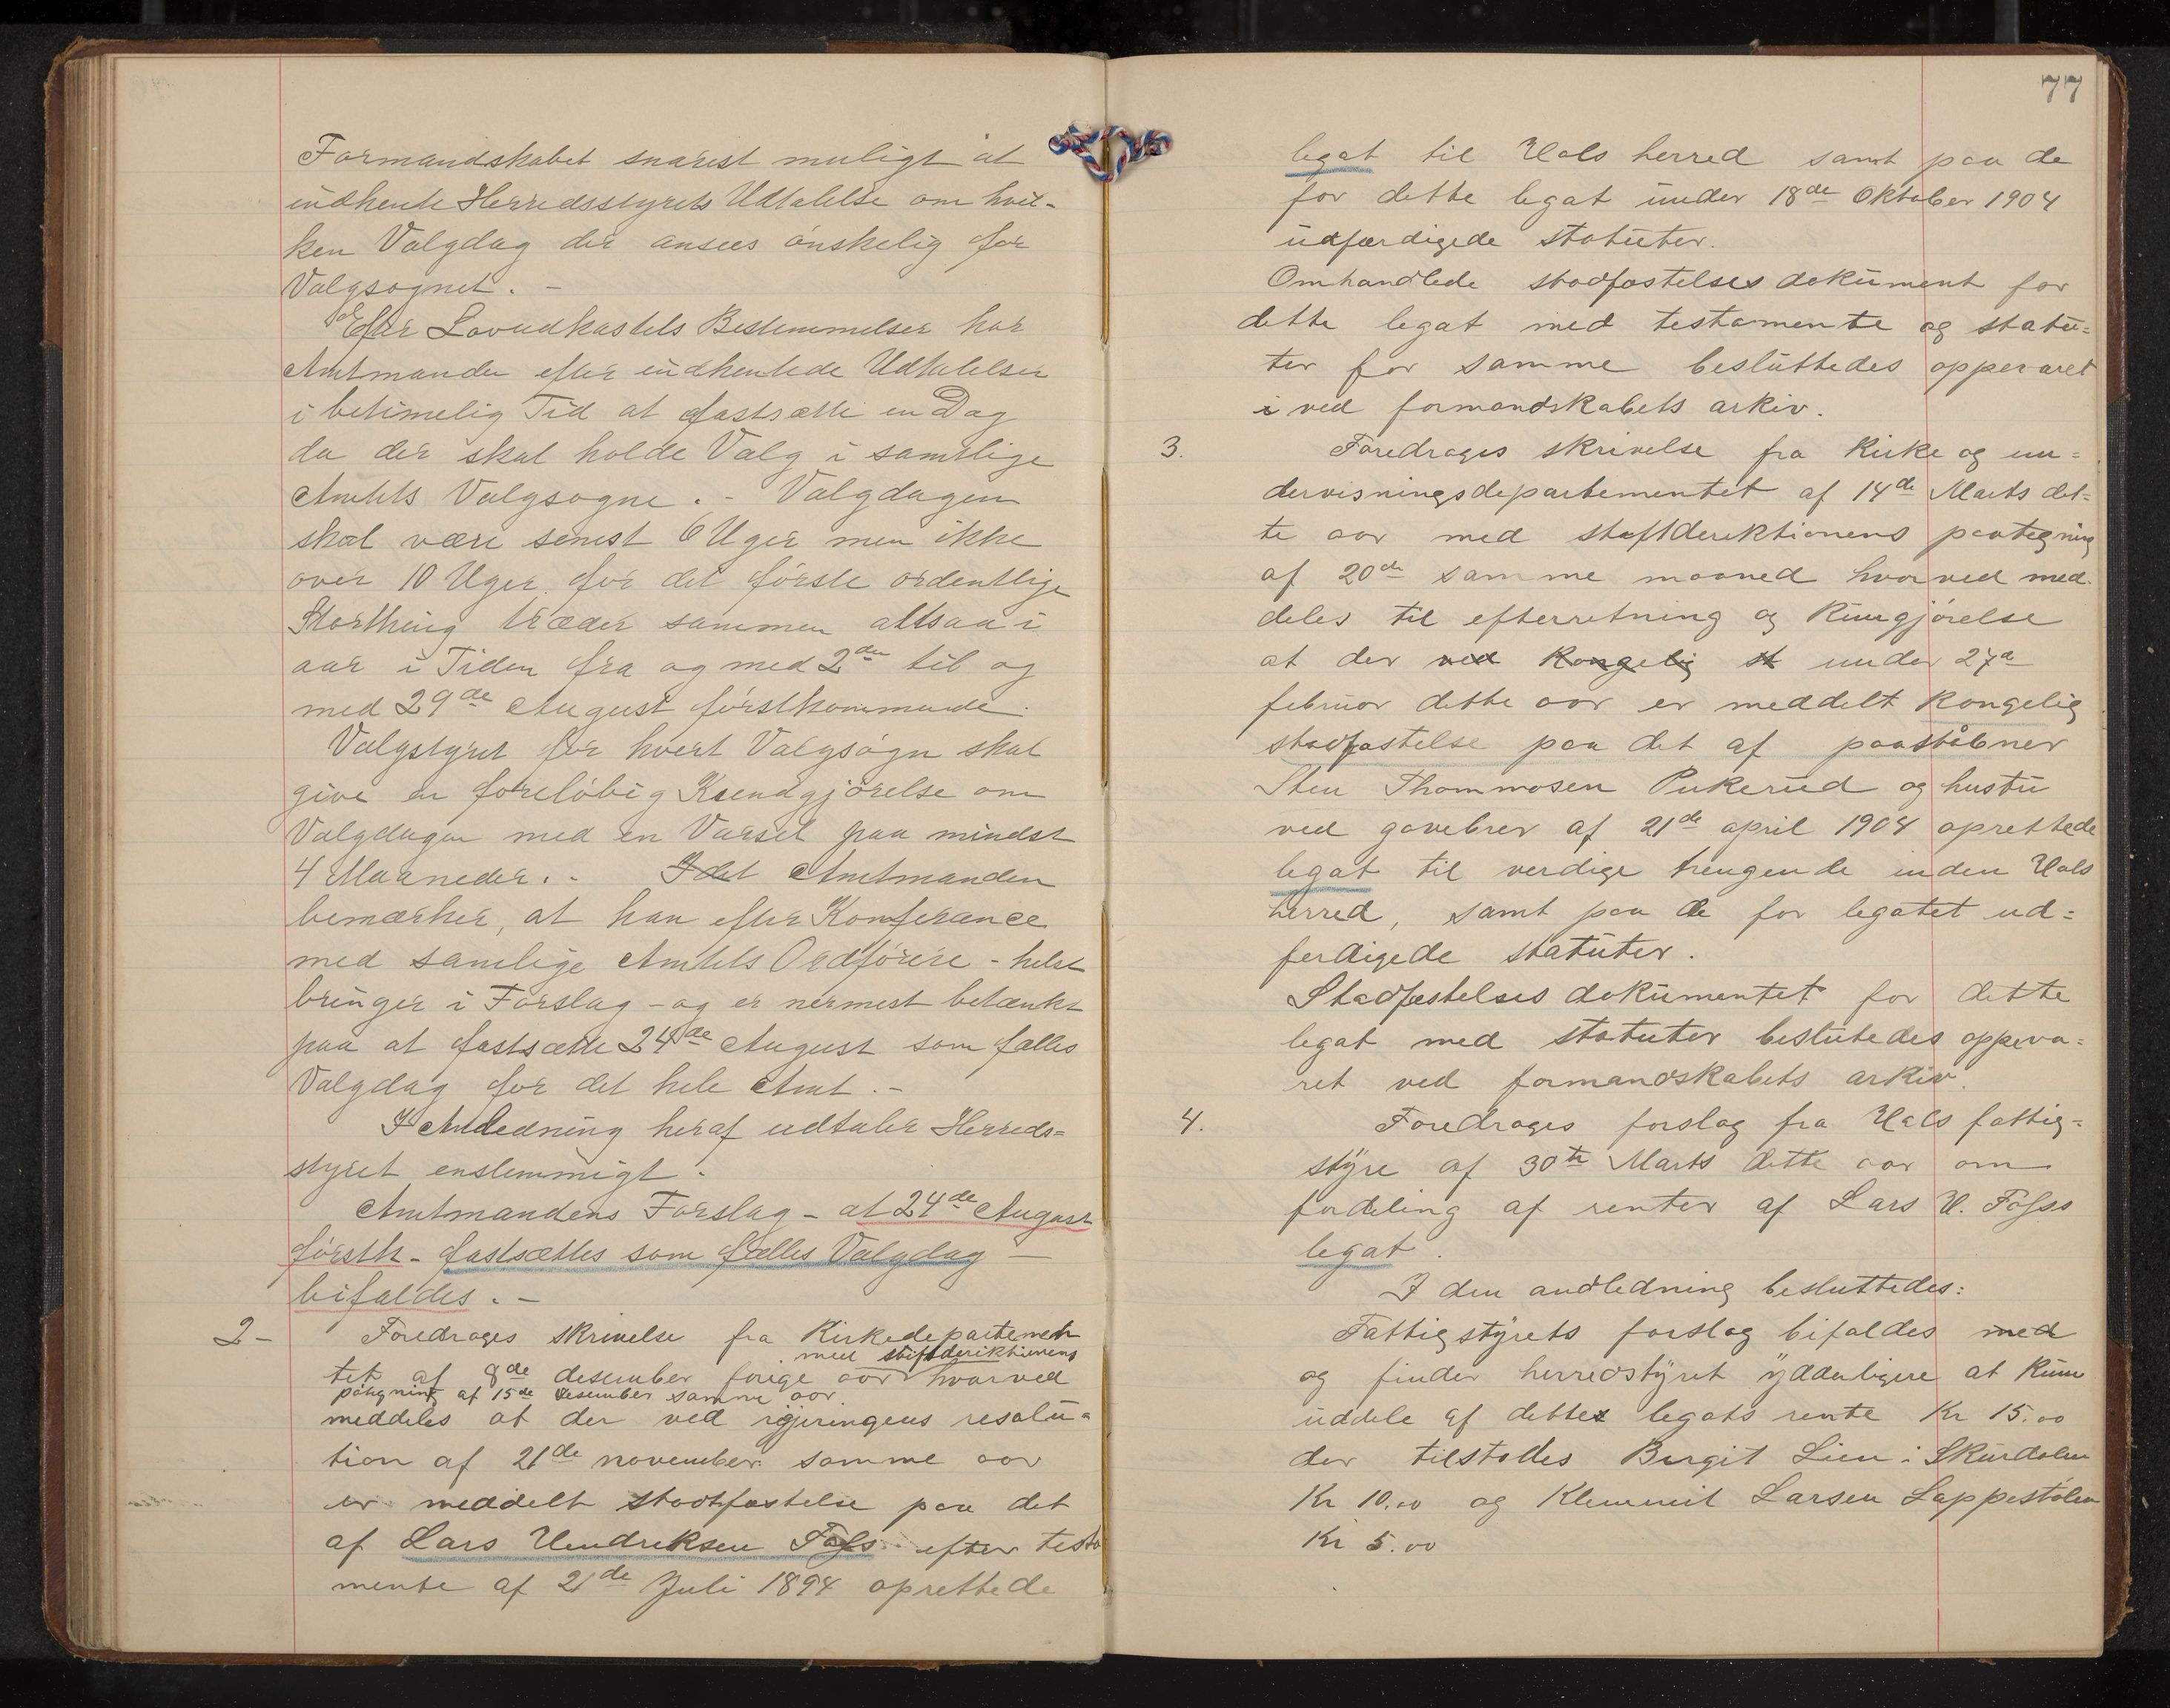 Formandskabet snarest muligt at
indhente Herredsstyrets Udtalelse om hvil-
ken Valgdag der ansees ønskelig for
Valgsognet. -
Efter Lovudkastets Bestemmelser har
Amtmanden efter indhentede Udtalelser
i betimelig Tid at fastsætte en Dag
da der skal holde Valg i samtlige
Amtets Valgsogne. - Valgdagen
skal være senest 6 Uger men ikke
over 10 Uger før det første ordentlige
Storthing træder sammen altsaa i
aar i Tiden fra og med 2den til og
med 29de August førstkommende.
Valgstyret for hvert Valgsogn skal
give en foreløbig Kundgjørelse om
Valgdagen med en Varsel paa mindst
4 Maaneder. - Idet Amtmanden
bemærker, at han efter Konferance
med samlige Amtets Ordførere - helst
bringer i Forslag - og er nermest betænkt
paa at fastsætte 24de August som fælles
Valgdag for det hele Amt. -
I Anledning heraf udtaler Herreds=
styret enstemmigt.
Amtmandens Forslag - at 24de August
førstk - fastsættes som fælles Valgdag -
bifaldes. -
2- Foredroges skrivelse fra Kirkedepartemen
med stiftderiktionens
tet af 8de desember forige aar hvorved
påtegning af 15de desember samme aar
meddeles at der ved regjeringens resolu=
tion af 21de november samme aar
er meddelt stadfæstelse paa det
af Lars Hendreksen Fofs efter testa
mente af 21de Juli 1894 oprettede
77
legat til Uvdals herred samt paa de
for dette legat under 18de Oktober 1904
udfærdigede statuter.
Omhandlede stadfæstelses dokument for
dette legat med testamente og statu=
ter for samme besluttedes oppevaret
i ved formandskabets arkiv.
3. Foredroges skrivelse fra Kirke og un=
dervisningsdepartementet af 14de Marts det=
te aar med stiftderektionens paategning
af 20de samme maaned hvorved med-
deles til efterretning og kungjørelse
at der ved Kongelig st under 27de
februar dette aar er meddelt Kongelig
stadfæstelse paa det af poståbner
Sten Thommosen Pukerud og hustu
ved gavebrev af 21de april 1904 oprettede
legat til verdige trengende inden Uvdals
herred, samt paa de for legatet ud=
ferdigede statuter.
Stadfæstelses dokumentet for dette
legat med statuter beslutedes oppeva=
ret ved formandskabets arkiv.
4. Foredroges forslag fra Uvdals fattig=
styre af 30te Marts dette aar om
fordeling af renter af Lars H. Fofss
legat.
I den andledning besluttedes:
Fattigstyrets forslag bifaldes med
og finder herredstyret ydderligere at kun
uddele af dettes legats rente Kr 15.00
der tilstoldes Birgit Lien i Skurdalen
Kr 10.00 og Klemmit Larsen Lappestølen
Kr 5.00